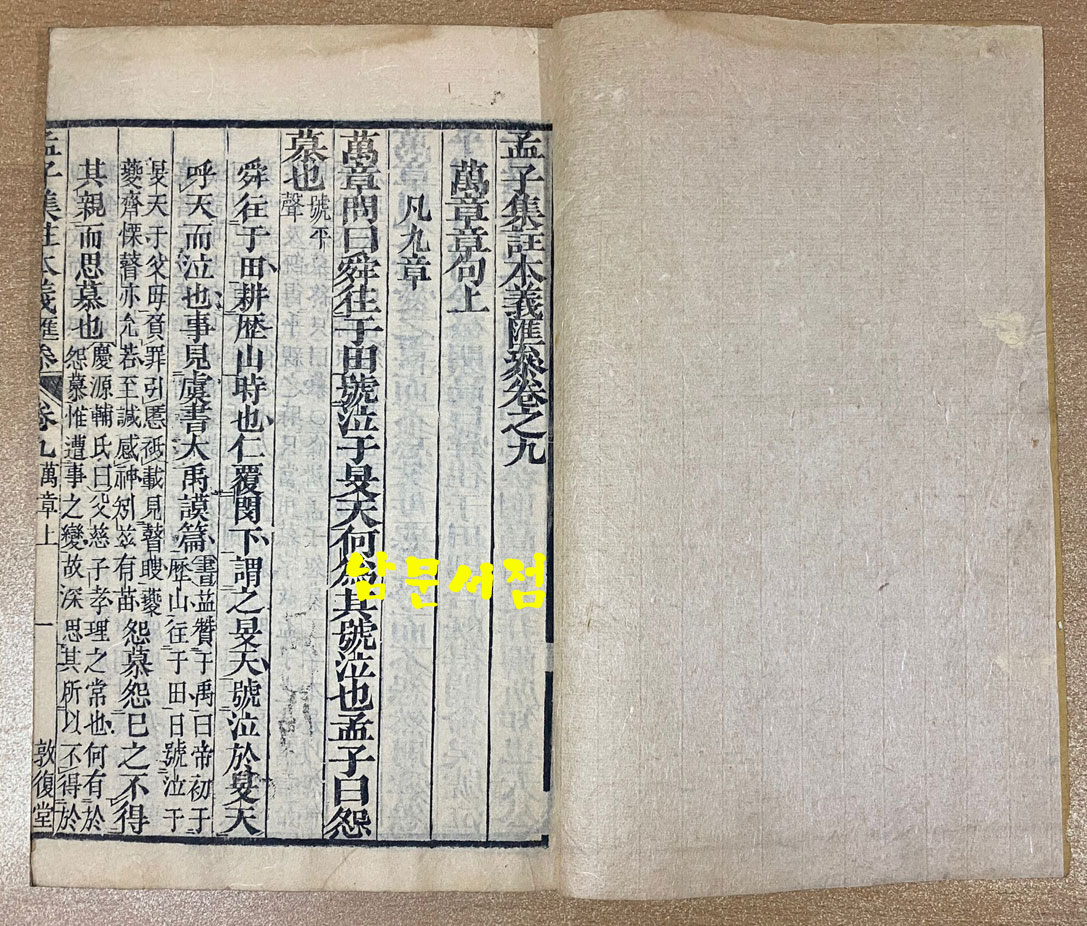 孟子集註本義匯叅卷之九
萬章章句上
凡九章
萬章問曰舜往于田號泣于旻天何爲其號泣也孟子曰怨
慕也號平聲
舜往于田耕歴山時也仁覆閔下謂之旻天號泣於旻天
呼天而泣也事見虞書大禹謨篇書益贊于禹曰帝初于歴山往于田日號泣于
旻天于父母負罪引慝祗載見瞽瞍夔夔齊慄瞽亦允若至諴感神矧茲有苗怨慕怨己之不得
其親而思慕也慶源輔氏曰父慈子孝理之常也何有於怨慕惟遭事之變故深思其所以不得於
孟子集註本義匯叅 卷九 萬章上 一 敦復堂
남문서점